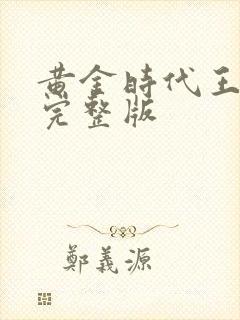 黄金時代王
完整版
鄭義源